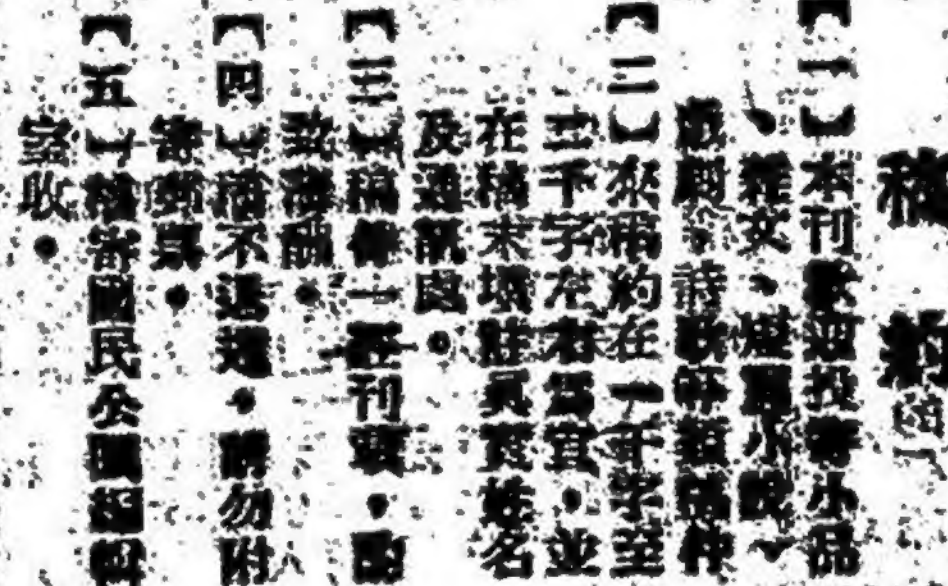 稿約
【一】本刊歡迎投寄小品
、雜文、短篇小說、
戲劇、詩歌等類稿件
【二】來稿約在一千字至
三千字左右為宜。並
在稿末填註真實姓名
及通訊處。
【三】稿件一經刊載。酌
致薄酬。
【四】稿不退還。請勿附
寄郵票。
【五】稿寄國民公園編輯
室收。